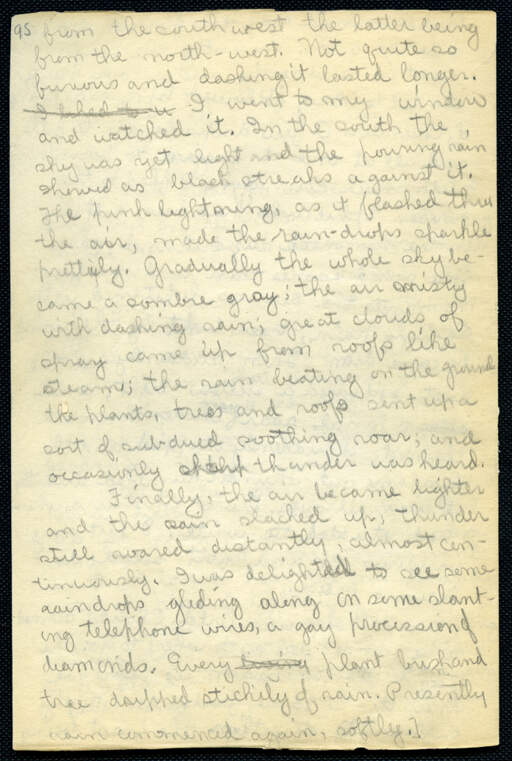 95 from the southwest the latter being
from the north-west. Not quite so
furious and dashing it lasted longer.
I went to my window
and watched it. In the south the
sky was yet light and the pouring rain
showed as black streaks against it.
The pink lightning, as it flashed thru
the air, made the rain-drops sparkle
prettily. Gradually the whole sky be-
came a sombre gray; the air misty
with dashing rain; great clouds of
spray came up from roofs like
steam; the rain beating on the ground
the plants, trees and roofs sent up a
sort of subdued soothing roar; and
occasionly thunder was heard.
Finally, the air became lighter
and the rain slacked up, thunder
still roared distantly almost con-
tinuously. I was delighted to see some
raindrops gliding along on some slant-
ing telephone wires, a gay procession of
diamonds. Every plant bush and
tree dripped stickily of rain. Presently
rain commenced again, softly.]